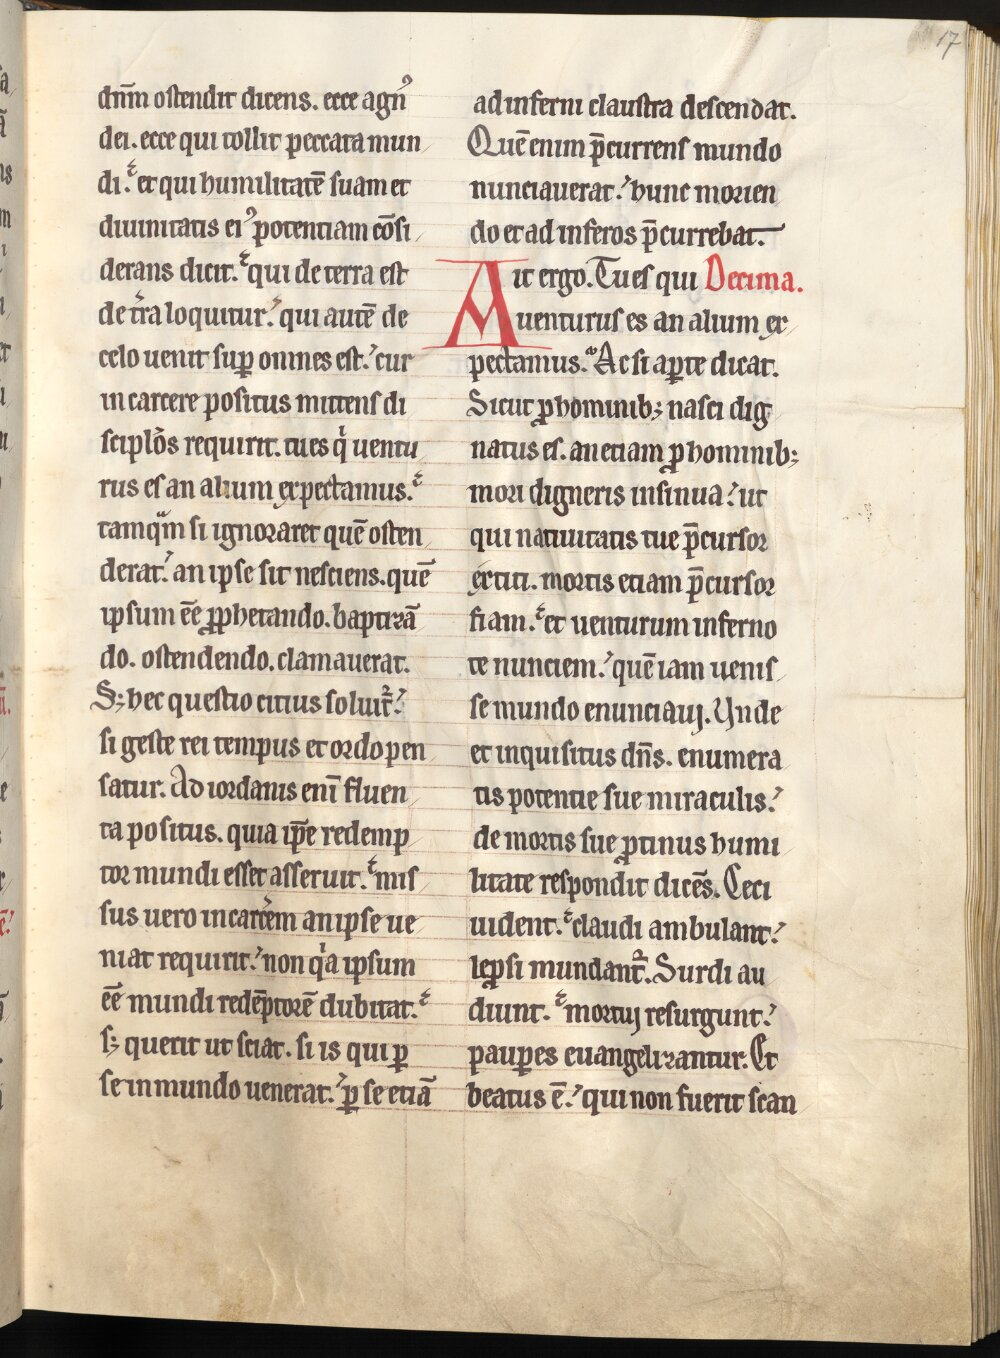 17
dn̄m ostendit dicens. ecce agnꝰ
dei. ecce qui tollit peccata mun
di. et qui humilitatē suam et
diuinitatis eiꝰ potentiam cōsi
derans dicit. qui de terra est
de tͥra loquitur. qui autē de
celo uenit suꝑ omnes est. cur
in carcere positus mittens di
scipl̄os requirit. tu es qͥ uentu
rus es an alium expectamus.
tamqᷓm si ignoraret quē osten
derat. an ipse sit nesciens. quē
ipsum ēē ꝓphetando. baptizā
do. ostendendo. clamauerat.
Sꝫ hec questio citius soluit᷑.
si geste rei tempus et ordo pen
satur. Ad iordanis eni᷑ fluen
ta positus. quia ip̄e redemp
tor mundi esset asseruit. mis
sus uero in carcͤem an ipse ue
niat requirit. non qͥa ipsum
ēē mundi redēptorē dubitat.
sꝫ querit ut sciat. si is qui ꝑ
se in mundo uenerat. ꝑ se etiā
ad inferni claustra descendat.
Quē enim p̄currens mundo
nunciauerat. hunc morien
do et ad inferos p̄currebat.
Ait ergo. Tu es qui Decima.
uenturus es an alium ex
pectamus. Ac si aꝑte dicat.
Sicut ꝓ hominibꝫ nasci dig
natus es. an etiam ꝓ hominibꝫ
mori digneris insinua. ut
qui natiuitatis tue p̄cursor
extiti. mortis etiam p̄cursor
fiam. et uenturum inferno
te nunciem. quē iam uenis
se mundo enunciaui. Unde
et inquisitus dn̄s. enumera
tis potentie sue miraculis.
de mortis sue ꝓtinus humi
litate respondit dicēs. Ceci
uident. claudi ambulant.
leꝑsi mundant᷑. Surdi au
diunt. mortui resurgunt.
pauꝑes euangelizantur. Et
beatus ē. qui non fuerit scan